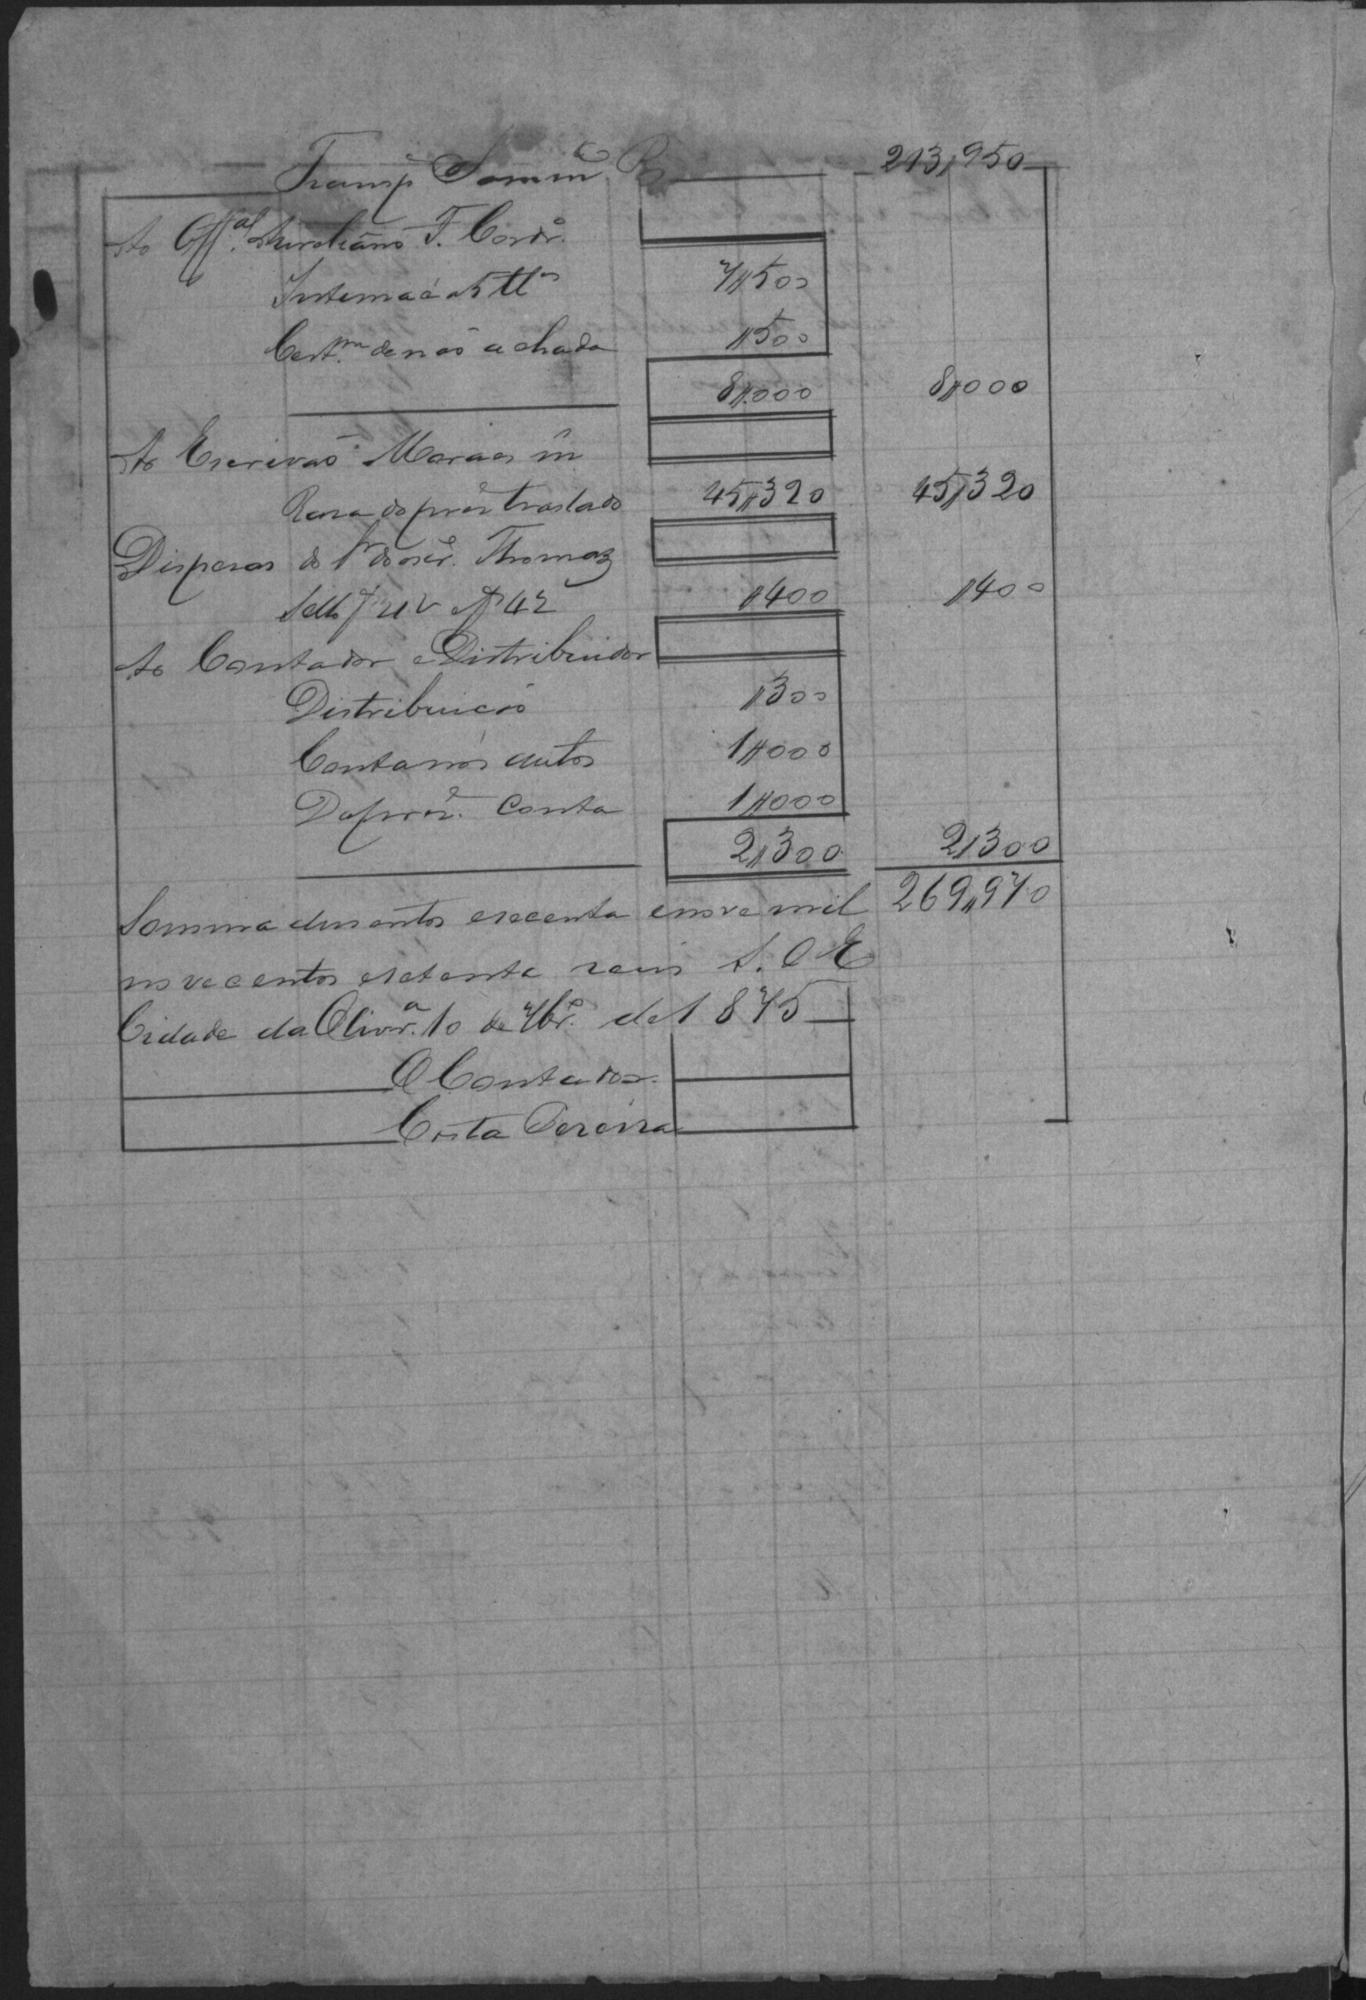 Transp. Somm.e R 213,950
Ao Off.al Aureliano F. Cordr.o
Intemaçã a 5 tt.as 7,,500
Cert.m de não achada ,,500
8,,000 8,,000
Ao Escrivão Moraes in
Raza do prez.e traslado 45,,320 45,,320
Dispezas do Thomaz
Sello f 41 v e f 42 ,,400 ,,400
Ao Contador e Distribuidor
Distribuição ,,300
Conta nos autos 1,,000
Da prez.e Conta 1,,000
2,,300 2,300
Somma dusentos esecenta enove mil 269,,970
novecentos esetenta reis S. O E
Cidade da Olivr.a 10 de 7br.o de 1875
O Contador
Costa Pereira